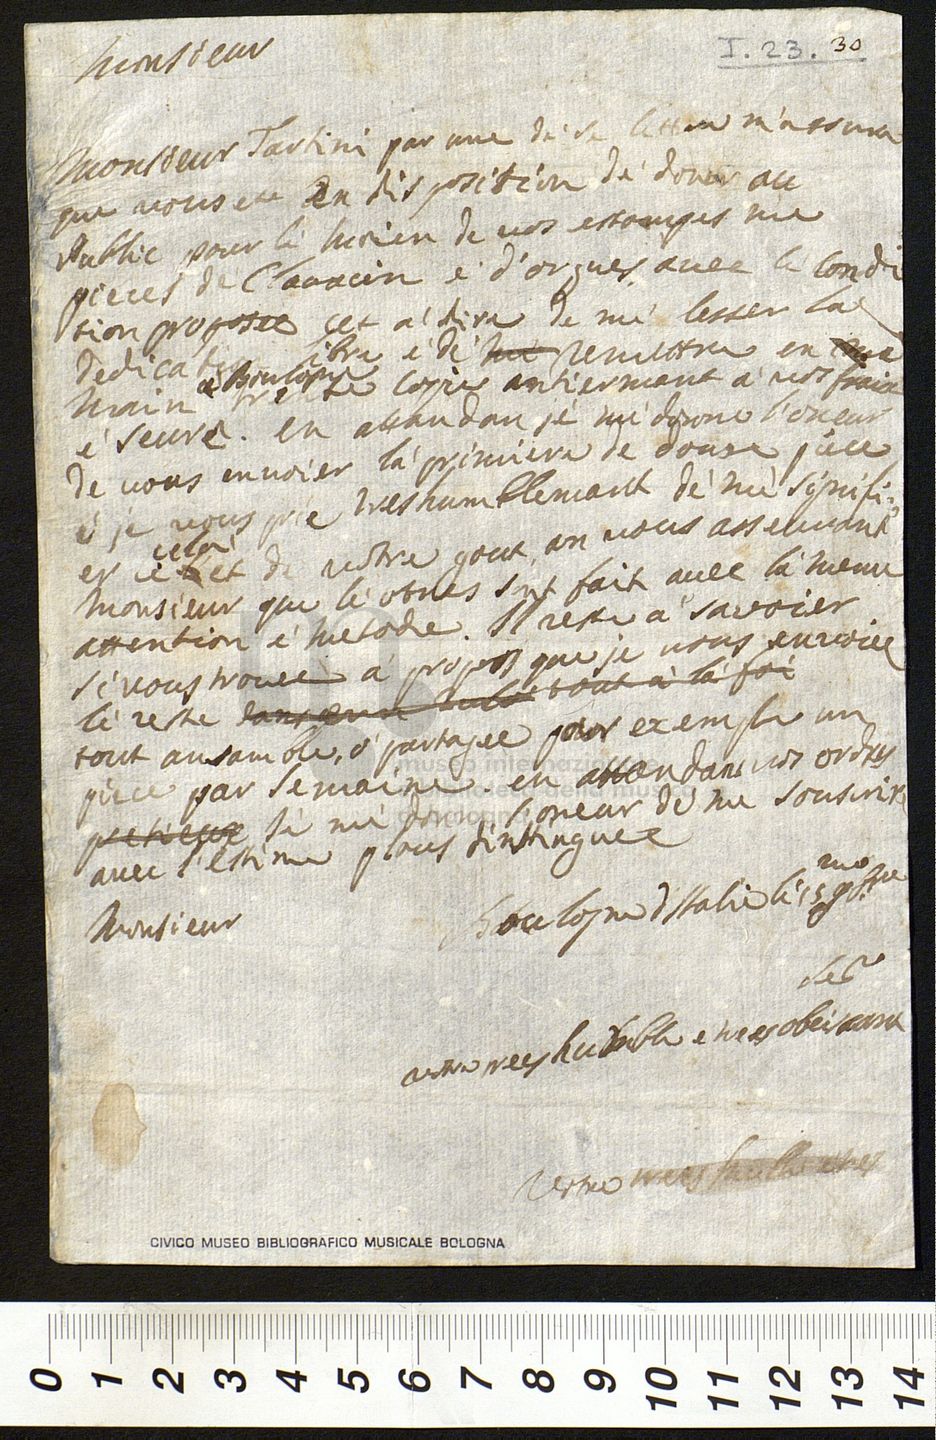 I. 23. 30
Monsieur
Monsieur Tartini par une de se lettre m'assura
que vous ete en disposition dé doner au
Public pour lé moien de vos estampes me
pieces dé Clavacin é d'orgues avec lé condi
sion proposee cet a' dire de mé lesser la
dedicat libre é dé mé remettre en me
main a Boulogne trente copie antierment a' vos fraix
é seure. en attandan je mé done l'oneur
de vous envoier la primiere de douse piece
é je vous prie tres humblemant dé mé signifi-
er ce cela et de votre gout, an vous asseurant
Monsieur que lé otres sont fait avec la meme
attention é metode. Il reste a' savoier
sé vous trouvee a' propos que je vous envoiee
lé reste tout a' la foi
tout ansamble, ó partagee pour exemple un
piece par semaine. en attandans vos ordres
pretieux je mé done l'oneur de me souscrire
avec l'estime plous distinguee
Monsieur
Boulogne d'Italie lé 15
votre trees humble é trees obeissant
votre trees
museo internazionale
e biblioteca della musica
di bologna
CIVICO MUSEO BIBLIOGRAFICO MUSICALE BOLOGNA
0 1 2 3 4 5 6 7 8 9 10 11 12 13 14